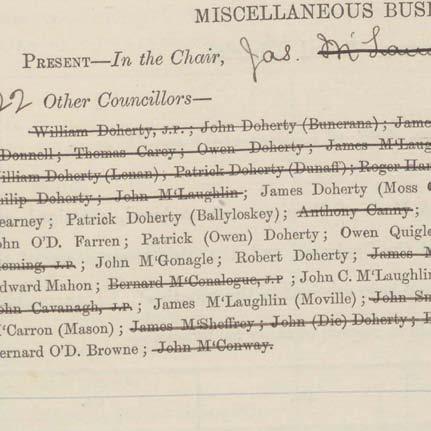 MISCELLANEOUS BUSI
PRESENT—In the Chair, Jas. M'Lau
22 Other Councillors—
William Doherty, J.P.; John Doherty (Buncrana); Jame
Donnell; Thomas Carey; Owen Doherty; James M'Laug
illiam Doherty (Lenan); Patrick Doherty (Dunaff); Roger Ha
hilip Doherty; John M'Laughlin; James Doherty (Moss
earney; Patrick Doherty (Ballyloskey); Anthony Canny;
ohn O'D. Farren; Patrick (Owen) Doherty; Owen Quigle
leming, J.P.; John M'Gonagle; Robert Doherty; James M
dward Mahon; Bernard M'Conalogue, J.P; John C. M'Laughlin
ohn Cavanagh, J.P.; James M'Laughlin (Moville); John Sm
M'Carron (Mason); James M'Sheffrey; John (Die) Doherty;
ernard O'D. Browne; John M'Conway.